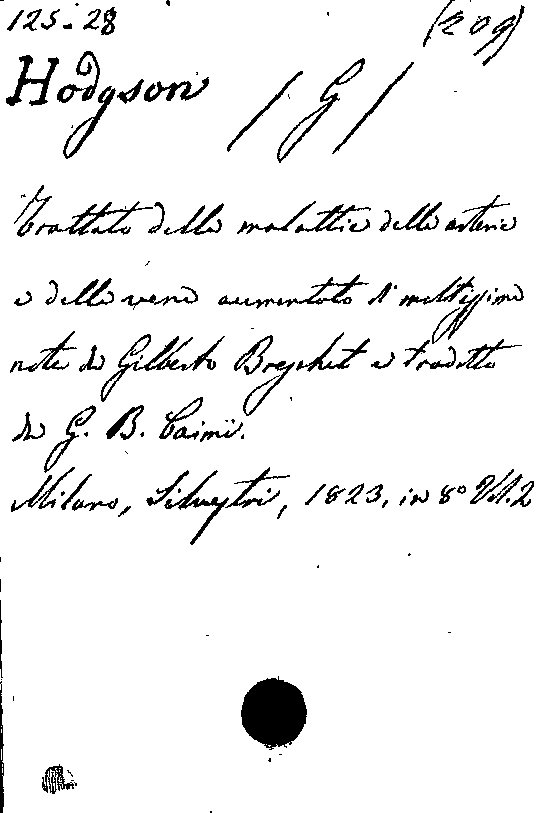 125-28 (209)
Hodgson / G /
Trattato delle malattie delle arterie
e delle vene aumentato di moltissime
note da Gilberto Breschet e tradotto
da G. B. Caimi.
Milano, Silvestri, 1823, in 8° Vol. 2